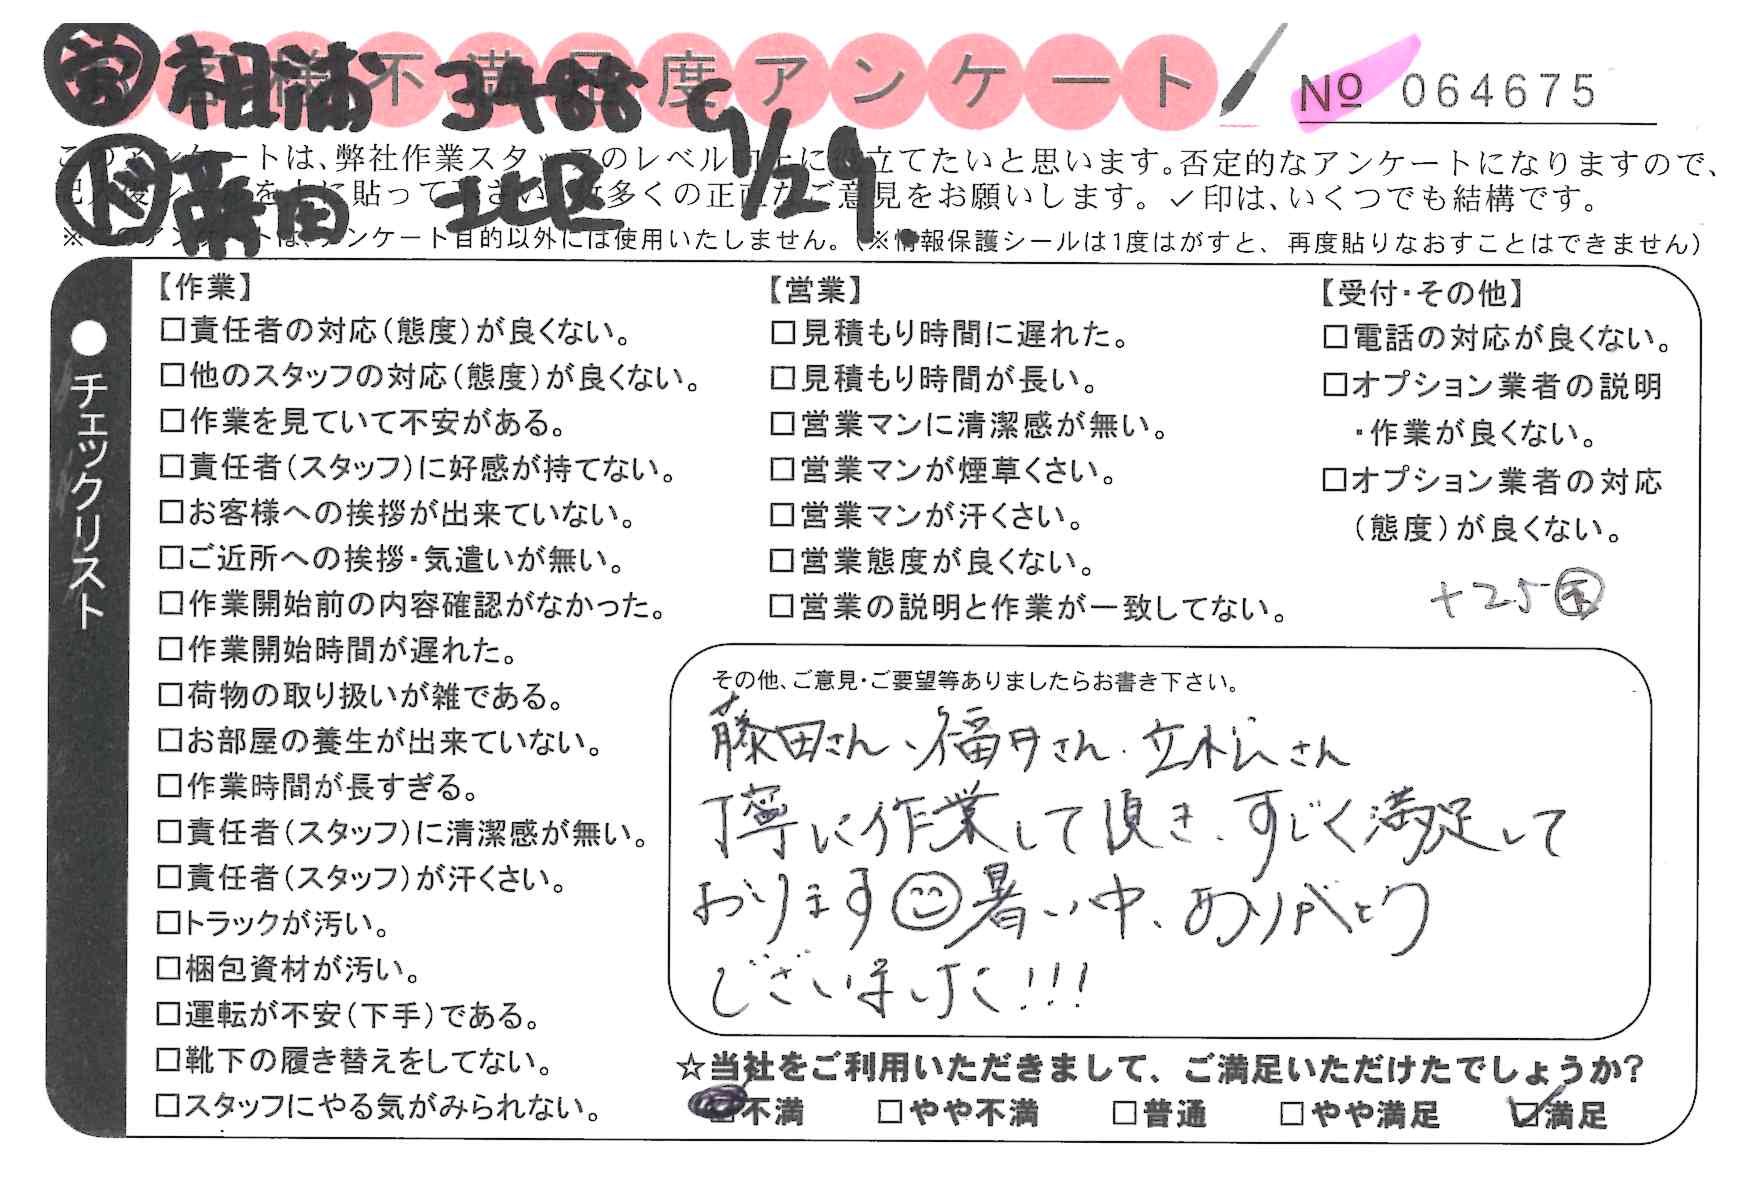 営 相浦 3488 G 9/29
ド 藤田 北区
お客様不満足度アンケート
№ 064675
このアンケートは、弊社作業スタッフのレベル向上に役立てたいと思います。否定的なアンケートになりますので、
記入後シールを上に貼って下さい。数多くの正直なご意見をお願いします。✓印は、いくつでも結構です。
※このアンケートは、アンケート目的以外には使用いたしません。(※情報保護シールは1度はがすと、再度貼りなおすことはできません)
●チェックリスト
【作業】
□責任者の対応(態度)が良くない。
□他のスタッフの対応(態度)が良くない。
□作業を見ていて不安がある。
□責任者(スタッフ)に好感が持てない。
□お客様への挨拶が出来ていない。
□ご近所への挨拶・気遣いが無い。
□作業開始前の内容確認がなかった。
□作業開始時間が遅れた。
□荷物の取り扱いが雑である。
□お部屋の養生が出来ていない。
□作業時間が長すぎる。
□責任者(スタッフ)に清潔感が無い。
□責任者(スタッフ)が汗くさい。
□トラックが汚い。
□梱包資材が汚い。
□運転が不安(下手)である。
□靴下の履き替えをしてない。
□スタッフにやる気がみられない。
【営業】
□見積もり時間に遅れた。
□見積もり時間が長い。
□営業マンに清潔感が無い。
□営業マンが煙草くさい。
□営業マンが汗くさい。
□営業態度が良くない。
□営業の説明と作業が一致してない。
【受付・その他】
□電話の対応が良くない。
□オプション業者の説明
・作業が良くない。
□オプション業者の対応
(態度)が良くない。
+25
その他、ご意見・ご要望等ありましたらお書き下さい。
藤田さん、福井さん、立松さん
丁寧に作業して頂き、すごく満足して
おります 暑い中、ありがとう
ございました!!!
☆当社をご利用いただきまして、ご満足いただけたでしょうか?
□不満 □やや不満 □普通 □やや満足 ☑満足